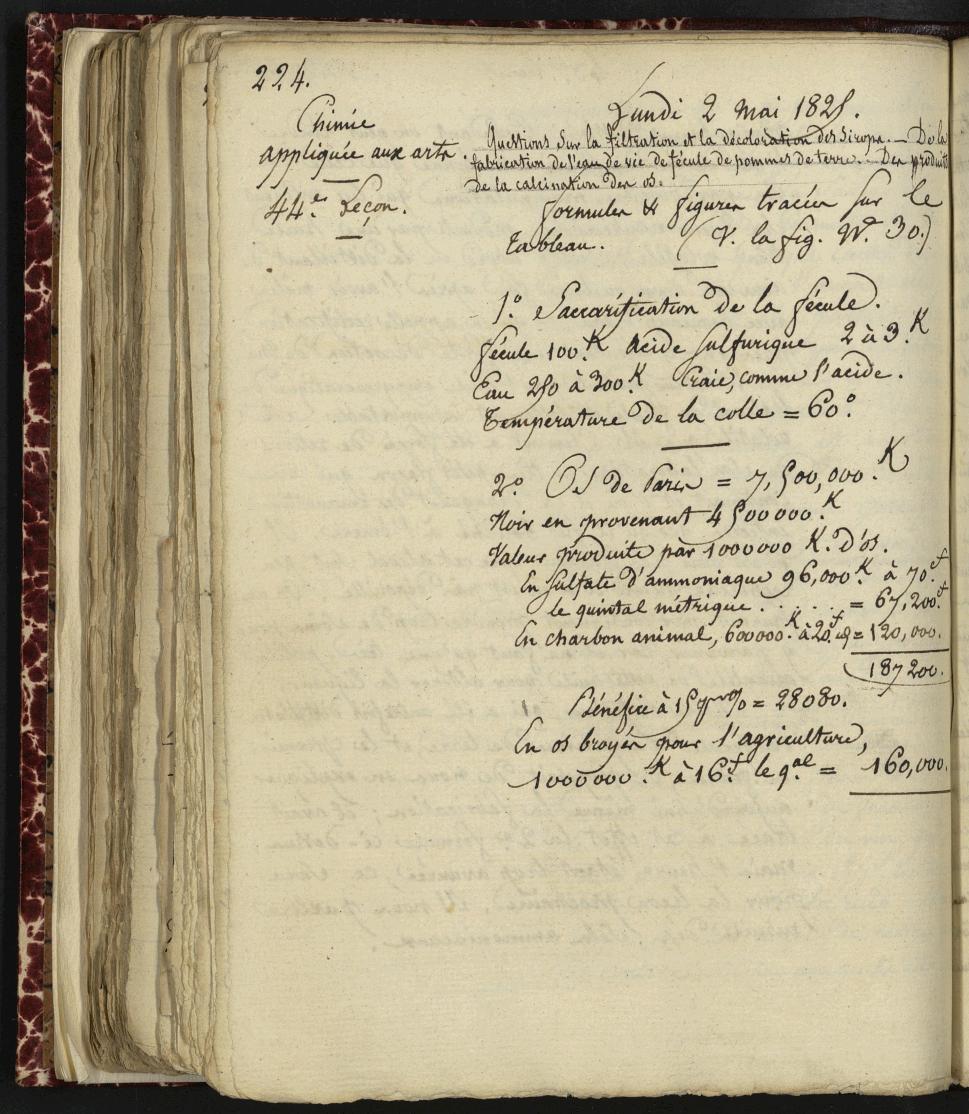 224.
Chimie
appliquée aux arts.
44.e Leçon.
Lundi 2 Mai 1825.
Questions sur la filtration et la décoloration des Sirops. — De la
fabrication de l'eau de vie de fécule de pommes de terre. — Des produits
de la calcination des os.
formules & figures tracées sur le
tableau. (V. la fig. N.o 30.)
1.o Saccarification de la fécule.
fécule 100.K Acide sulfurique 2 à 3.K
Eau 250 à 300.K Craie, comme l'acide.
Température de la colle = 60.o
2.o Os de Paris = 7,500,000.K
Noir en provenant 4500000.K
Valeur produite par 1000000 K. d'os.
En sulfate d'ammoniaque 96,000.K à 70.f
le quintal métrique . . . . . = 67,200.f
En charbon animal, 600000.K à 20.f = 120,000.
187200.
Bénéfice à 15 % = 28080.
En os broyés pour l'agriculture,
1000000.K à 16.f le q.al = 160,000.